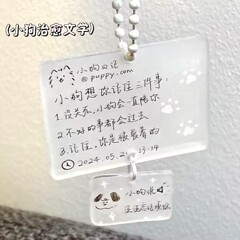 (小狗治愈文学)
小狗日记
@puppy.com
小狗想你记住三件事
1.没关系,小狗会一直陪你
2.不好的事都会过去
3.记住,你是很最看的
2024.05.2 13:14
小狗说